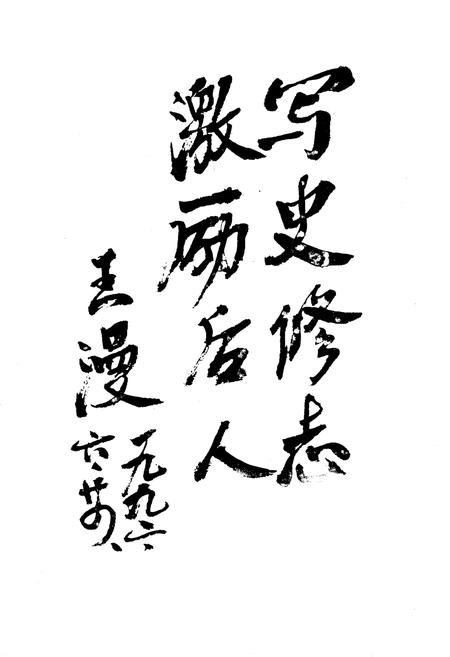 写史修志
激励后人
王漫
一九九六
六、廿四、